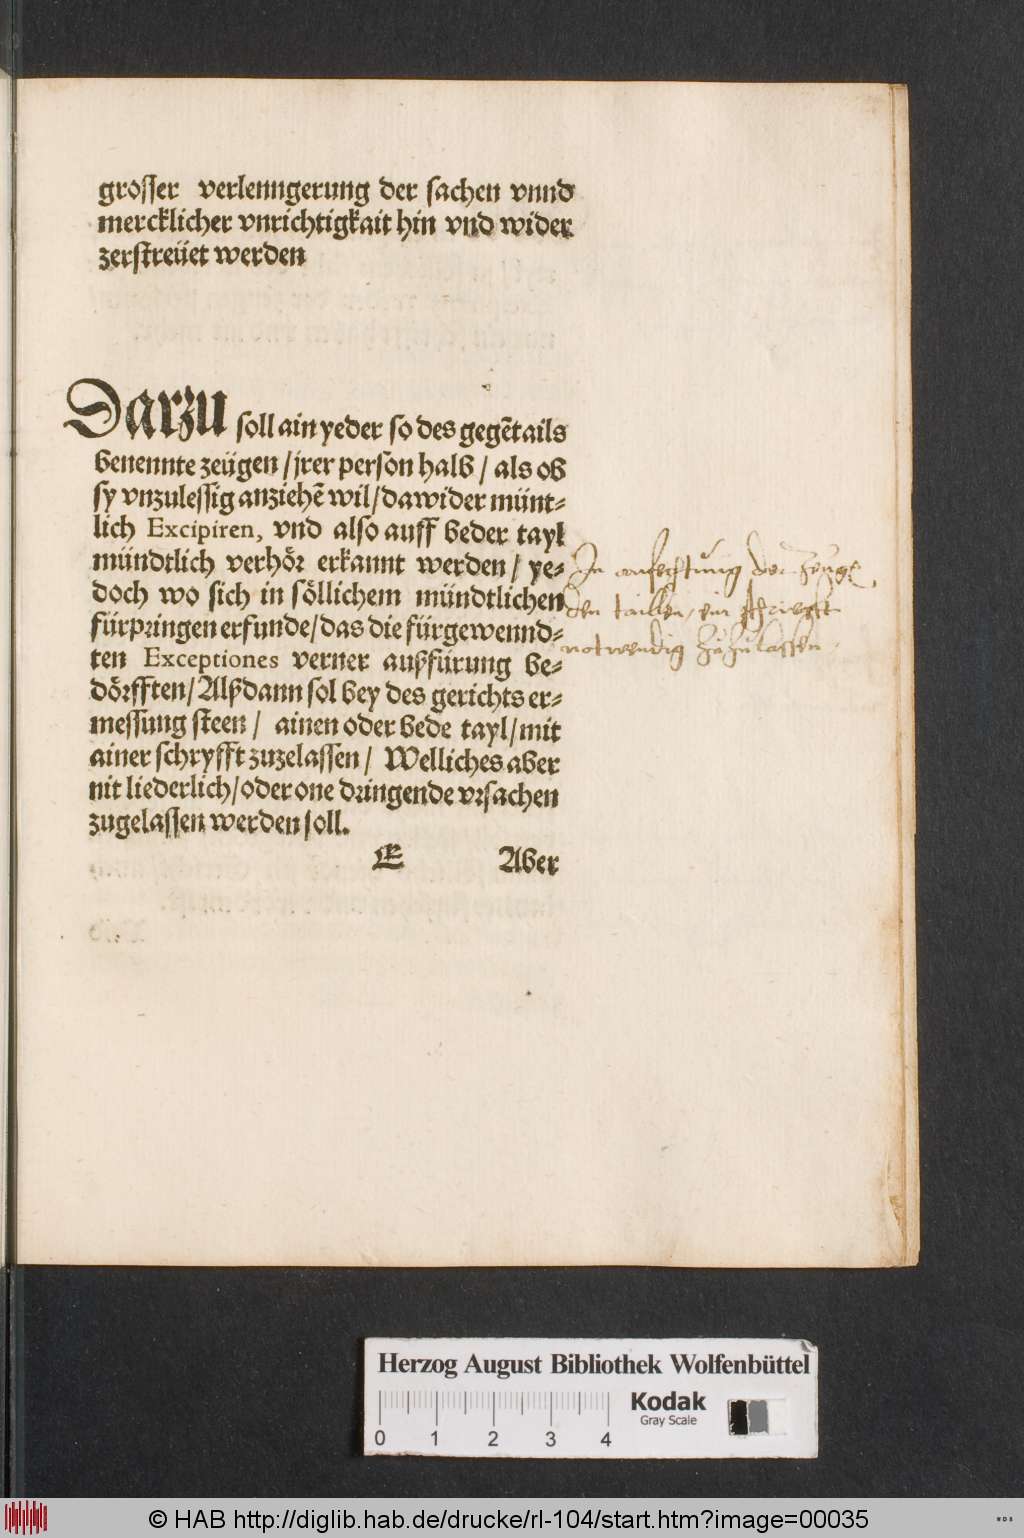 grosser verlenngerung der sachen vnnd
mercklicher vnrichtigkait hin vnd wider
zerstreüet werden
Darzu soll ain yeder so des gegẽtails
benennte zeügen / jrer person halb / als ob
sy vnzulessig anziehẽ wil / dawider münt-
lich Excipiren, vnd also auff beder tayl
mündtlich verhör erkannt werden / ye-
doch wo sich in söllichem mündtlichen
fürpringen erfunde / das die fürgewennd-
ten Exceptiones verner außfürung be-
dörfften / Alßdann sol bey des gerichts er-
messung steen / ainen oder bede tayl / mit
ainer schryfft zuzelassen / Welliches aber
nit liederlich / oder one dringende vrsachen
zugelassen werden soll.
E Aber
In anfechtung der Zeugẽ
den taillen, ein schriefft
notwendig zuzulassen.
Herzog August Bibliothek Wolfenbüttel
Kodak
Gray Scale
0 1 2 3 4
© HAB http://diglib.hab.de/drucke/rl-104/start.htm?image=00035